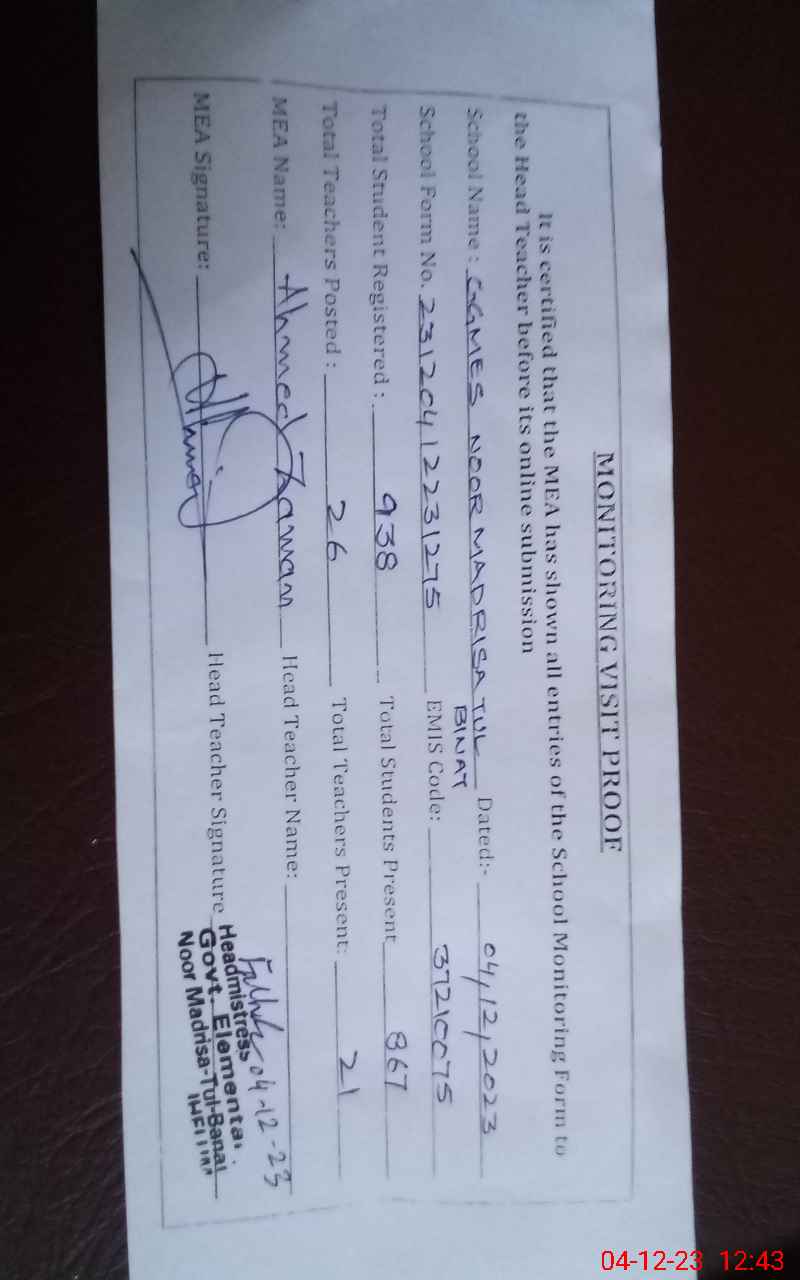 MONITORING VISIT PROOF
It is certified that the MEA has shown all entries of the School Monitoring Form to
the Head Teacher before its online submission
School Name : GGMES NOOR MADRISA TUL BINAT Dated:- 04,12,2023
School Form No. 23120412231275 EMIS Code: 37210075
Total Student Registered : 938 Total Students Present 867
Total Teachers Posted : 26 Total Teachers Present: 21
MEA Name: Ahmed Zaman Head Teacher Name:
MEA Signature: Head Teacher Signature
04-12-23
Headmistress
Govt. Elementa
Noor Madrisa-Tul-Banat
04-12-23 12:43